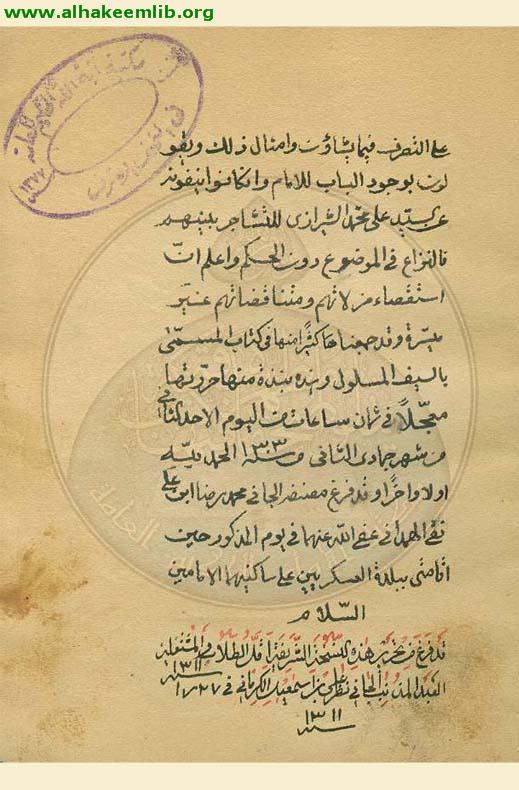 www.alhakeemlib.org
على التصرف فيما يشاؤن وامثال ذلك ويقو
لون بوجود الباب للامام وان كانوا ينفونه
عن السيد على محمد الشيرازى للتشاجر بينهم
فالنزاع فى الموضوع دون الحكم واعلم ان
استقصاء مزلاتهم ومتناقضاتهم غير
ميسرة وقد جمعنا كثيرا منها فى كتاب المسمى
بالسيف المسلول وهذه نبذة منها حررتها
معجلاً فى ثمان ساعات من اليوم الاحد الثانى
من شهر جمادى الثانى من سنه الحمد لله
اولا واخرا وقد فرغ مصنفه الجانى محمد رضا ابن على
نقى الهمدانى عفى الله عنهما فى يوم المذكور حين
اقامتى ببلدة العسكريين على ساكنيها الامامين
السلام
قد فرغ من تحرير هذه النسخة الشريفة اقل الطلاب
العبد المذنب الجانى على بن اسمعيل فى
سنه ١٣١١